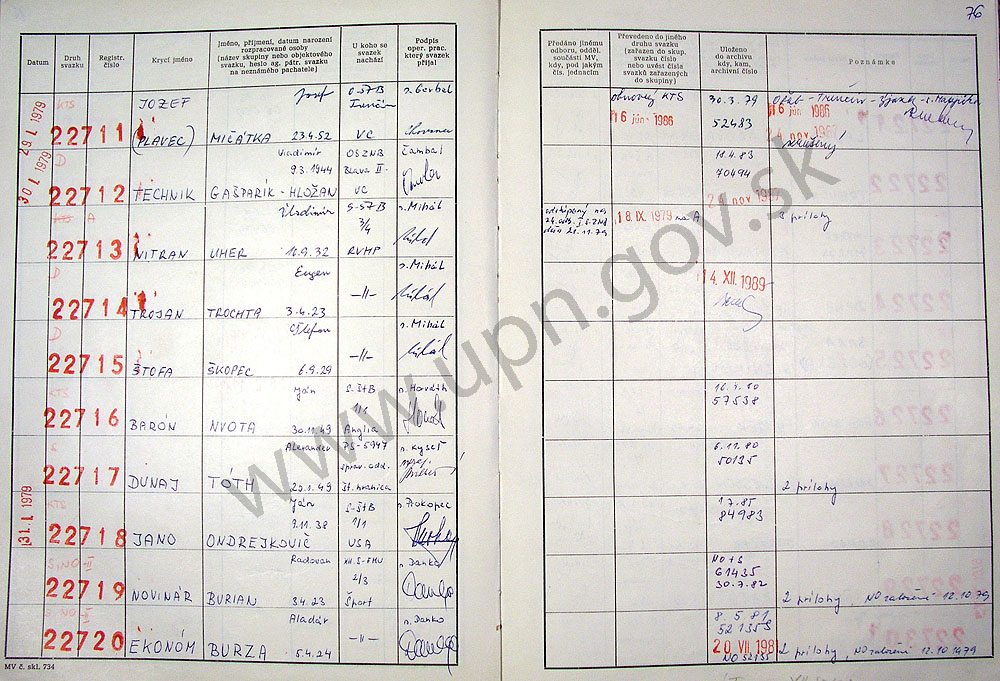 76
Datum
Druh svazku
Registr. číslo
Krycí jméno
Jméno, příjmení, datum narození rozpracované osoby (název skupiny nebo objektového svazku, heslo ag. pátr. svazku na neznámého pachatele)
U koho se svazek nachází
Podpis oper. prac. který svazek přijal
Předáno jinému odboru, odděl. součásti MV, kdy, pod jakým čís. jednacím
Převedeno do jiného druhu svazku (zařazen do skup. svazku číslo nebo uvést čísla svazků zařazených do skupiny)
Uloženo do archivu kdy, kam, archivní číslo
Poznámka
29. I. 1979
KTS
22711
JOZEF
(PLAVEC)
Jozef
MIČÁTKA 23.4.52
O-ŠTB
Trenčín
VC
s. Gerbel
obnovený KTS
16 jún 1986
30.3.79
52483
16 jún 1986
zrušený
30. I. 1979
D
22712
TECHNIK
Vladimír
9.3.1944
GAŠPARÍK - HLOŽAN
OSZNB
Blava II.
VC
Čambal
18.4.83
70494
KTS A
22713
NITRAN
Vladimír
UHER 16.9.32
S-ŠTB
3/4
RVMP
s. Mihál
18. IX. 1979 na A
3 prílohy
D
22714
TROJAN
Eugen
TROCHTA 3.4.23
-||-
s. Mihál
14. XII. 1989
D
22715
ŠTOFA
Štefan
ŠKOPEC 6.9.29
-||-
s. Mihál
KTS
22716
BARÓN
Ján
NVOTA 30.11.49
S-ŠtB
1/1
Anglia
s. Horváth
57538
22717
DUNAJ
Alexander
TÓTH
PS-5947
sprav. odd.
št. hranica
s. Kyseľ
6.11.80
50135
2 prílohy
31. I. 1979
KTS
22718
JANO
Ján
ONDREJKOVIČ 9.11.38
S-ŠtB
1/1
USA
s. Prokopec
1.7.85
84983
22719
NOVINÁR
Radovan
BURIAN 3.4.23
XII. S-FMV
2/3
Šport
s. Danko
61435
30.7.82
2 prílohy, NO založené 12.10.79
22720
EKONÓM
Aladár
BURZA 5.4.24
-||-
s. Danko
8.5.81
20 VII. 1981
2 prílohy, NO založené 12.10.1979
MV č. skl. 734
www.upn.gov.sk